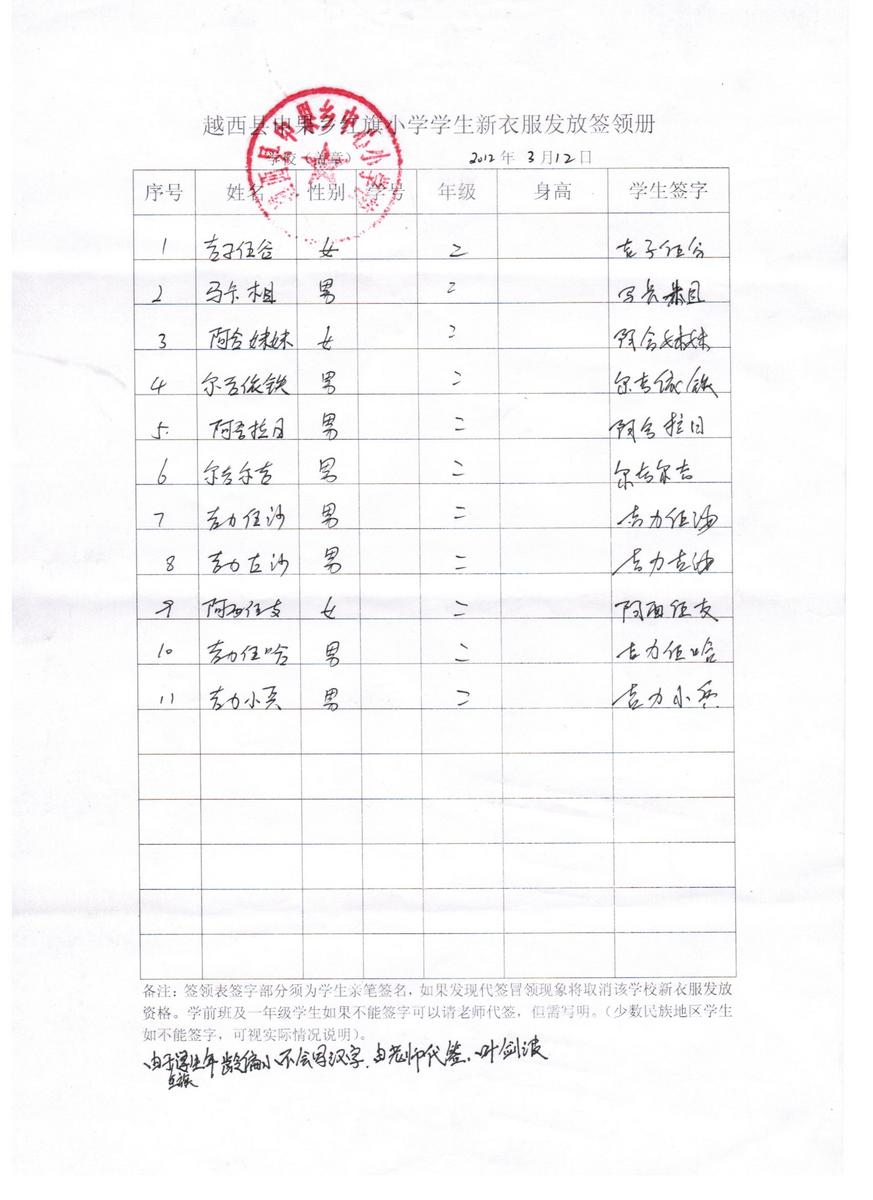 越西县中果乡红旗小学学生新衣服发放签领册
学校（盖章） 2012年 3月12日
序号 姓名 性别 学号 年级 身高 学生签字
1 吉子伍合 女 二 吉子伍合
2 马卡相 男 二
3 阿合妹妹 女 二 阿合妹妹
4 尔吉依铁 男 二 尔吉依铁
5. 阿合拉日 男 二 阿合拉日
6 尔吉尔吉 男 二 尔吉尔吉
7 吉力伍沙 男 二 吉力伍沙
8 吉力古沙 男 二 吉力古沙
9 阿西伍支 女 二 阿西伍支
10 吉力伍哈 男 二 吉力伍哈
11 吉力小兵 男 二 吉力小兵
备注：签领表签字部分须为学生亲笔签名，如果发现代签冒领现象将取消该学校新衣服发放
资格。学前班及一年级学生如果不能签字可以请老师代签，但需写明。（少数民族地区学生
如不能签字，可视实际情况说明）。
由于学生年龄偏小不会写汉字，由老师代签，叶剑波